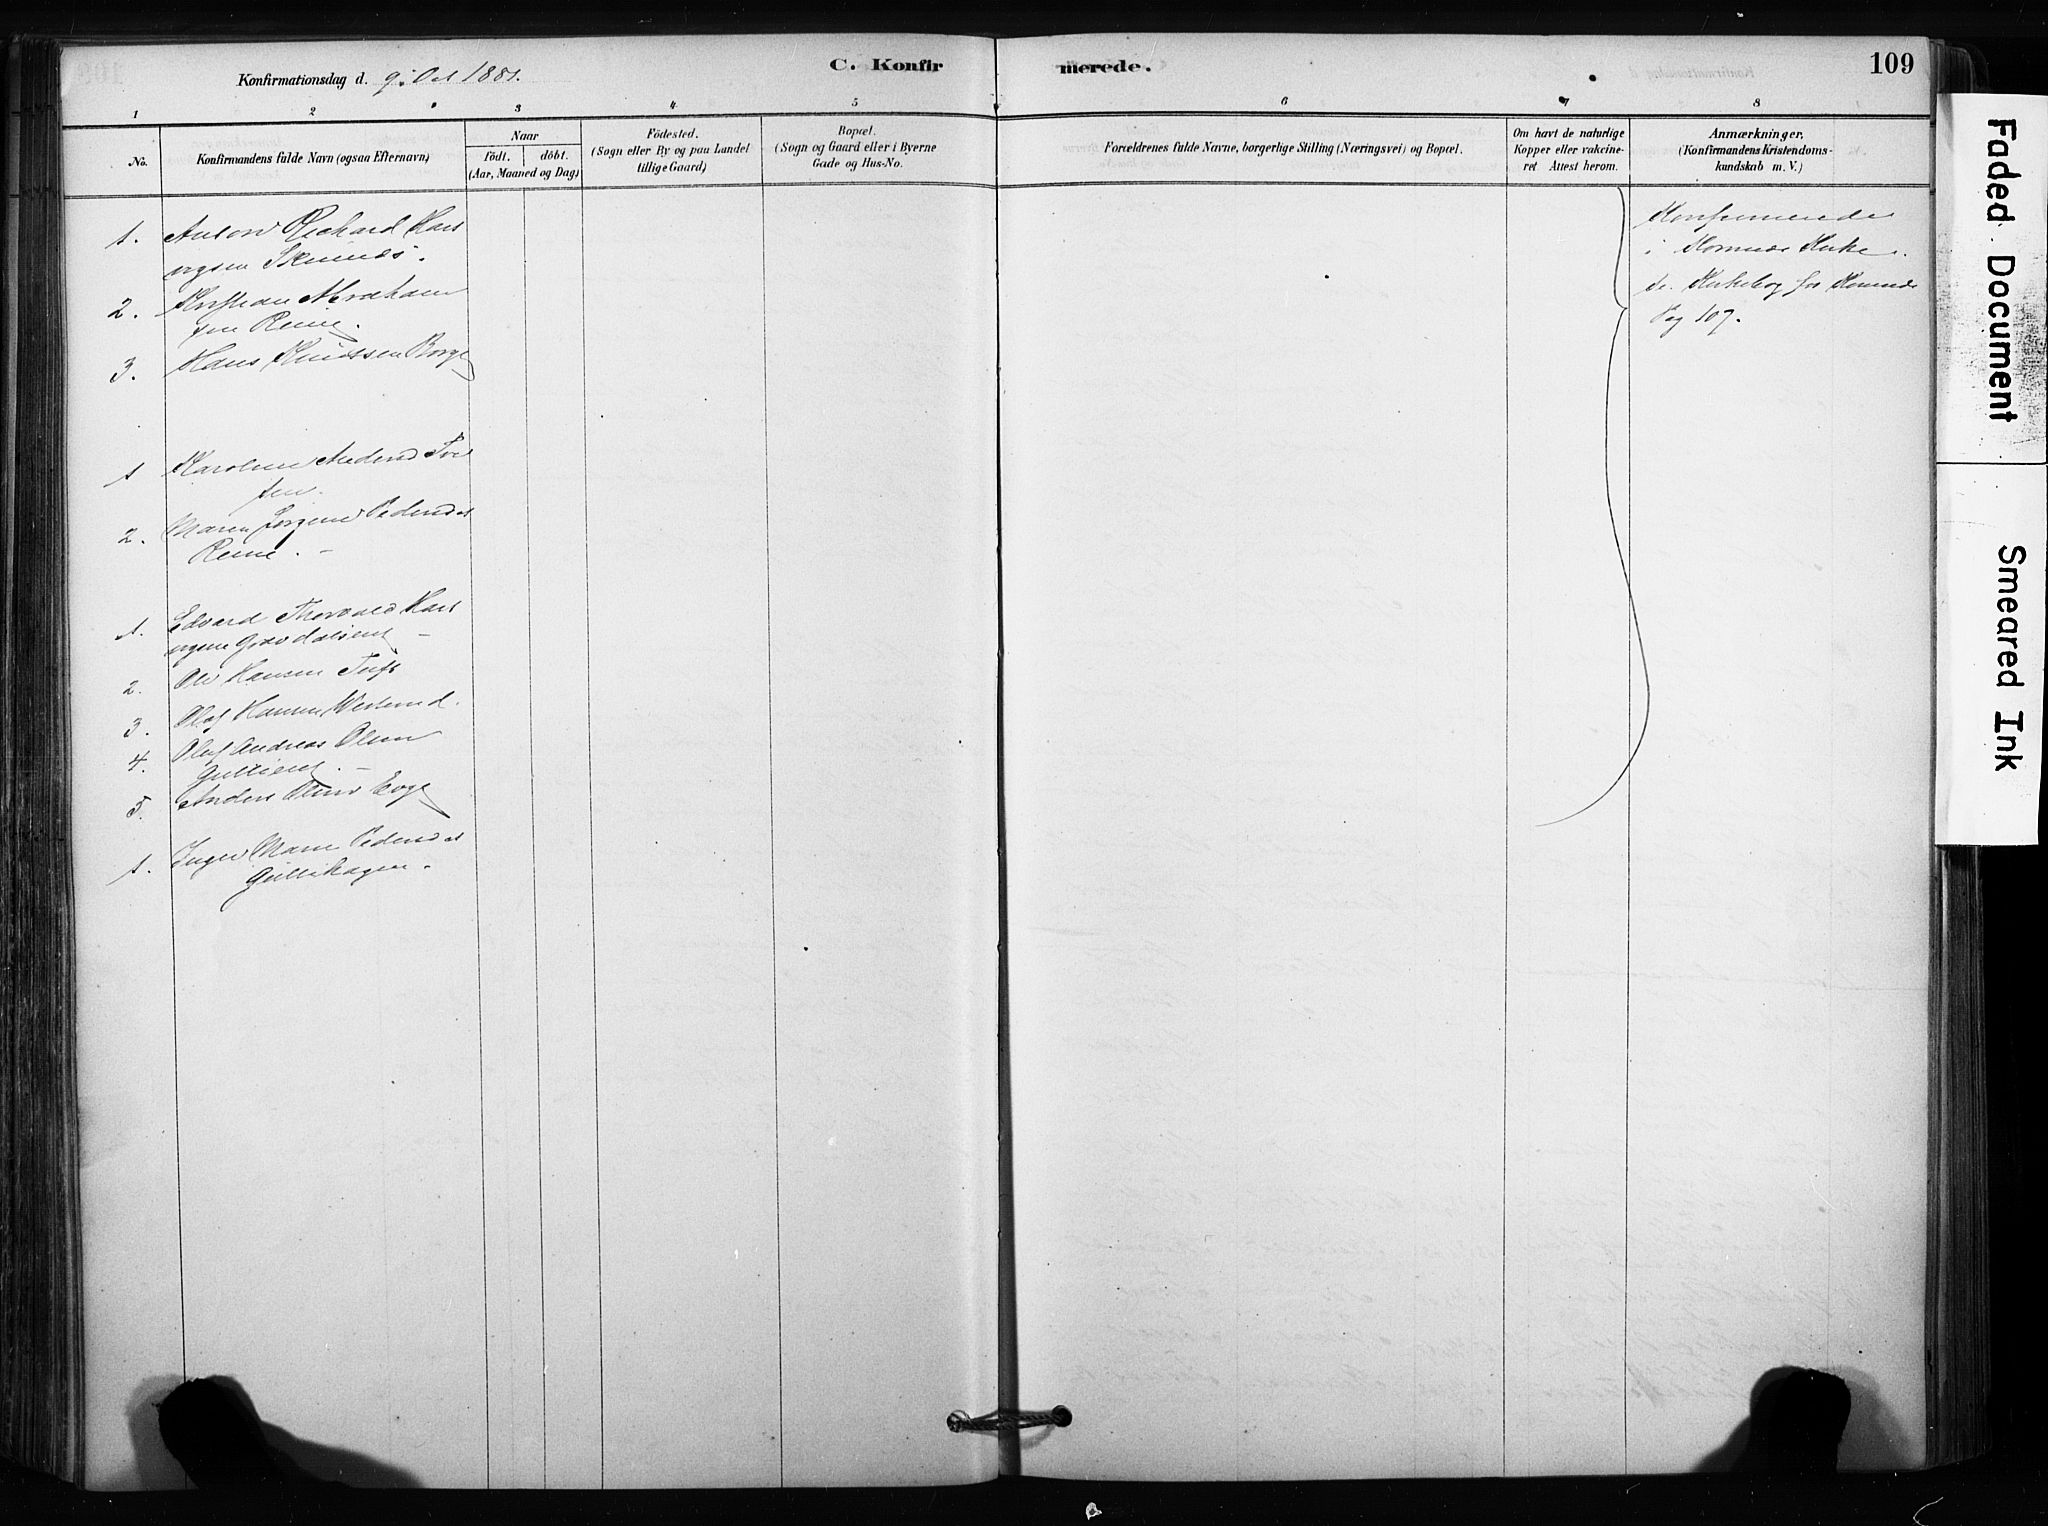 Konfirmationsdag d. 9. Oct 1881.
C. Konfir
merede.
109
1 2 3 4 5 6 7 8
No.
Konfirmandens fulde Navn (ogsaa Efternavn)
Naar
födt. döbt.
(Aar, Maaned og Dag)
Födested.
(Sogn eller By og paa Landet
tillige Gaard)
Bopæl.
(Sogn og Gaard eller i Byerne
Gade og Hus-No.
Forældrenes fulde Navne, borgerlige Stilling (Næringsvei) og Bopæl.
Om havt de naturlige
Kopper eller vakcine-
ret Attest herom.
Anmærkninger.
(Konfirmandens Kristendoms-
kundskab m. V.)
1. Anton Richard
2. Kristian Abraham
sen Reine.
3. Hans Knudssen Borge
1 Karoline
2. Maren Jørgine Pedersdat
Reine. -
1. Edvard Thorvald
2. Ole Hansen Tuft
3. Olaf Hansen
4. Olaf Andreas Olsen
5. Anders
1. Inger Marie Pedersdat
Gullikagen.
Konfirmerede
i Komnæs Kirke.
Kirkebog for Komnæs
Pag 107.
Faded Document
Smeared Ink